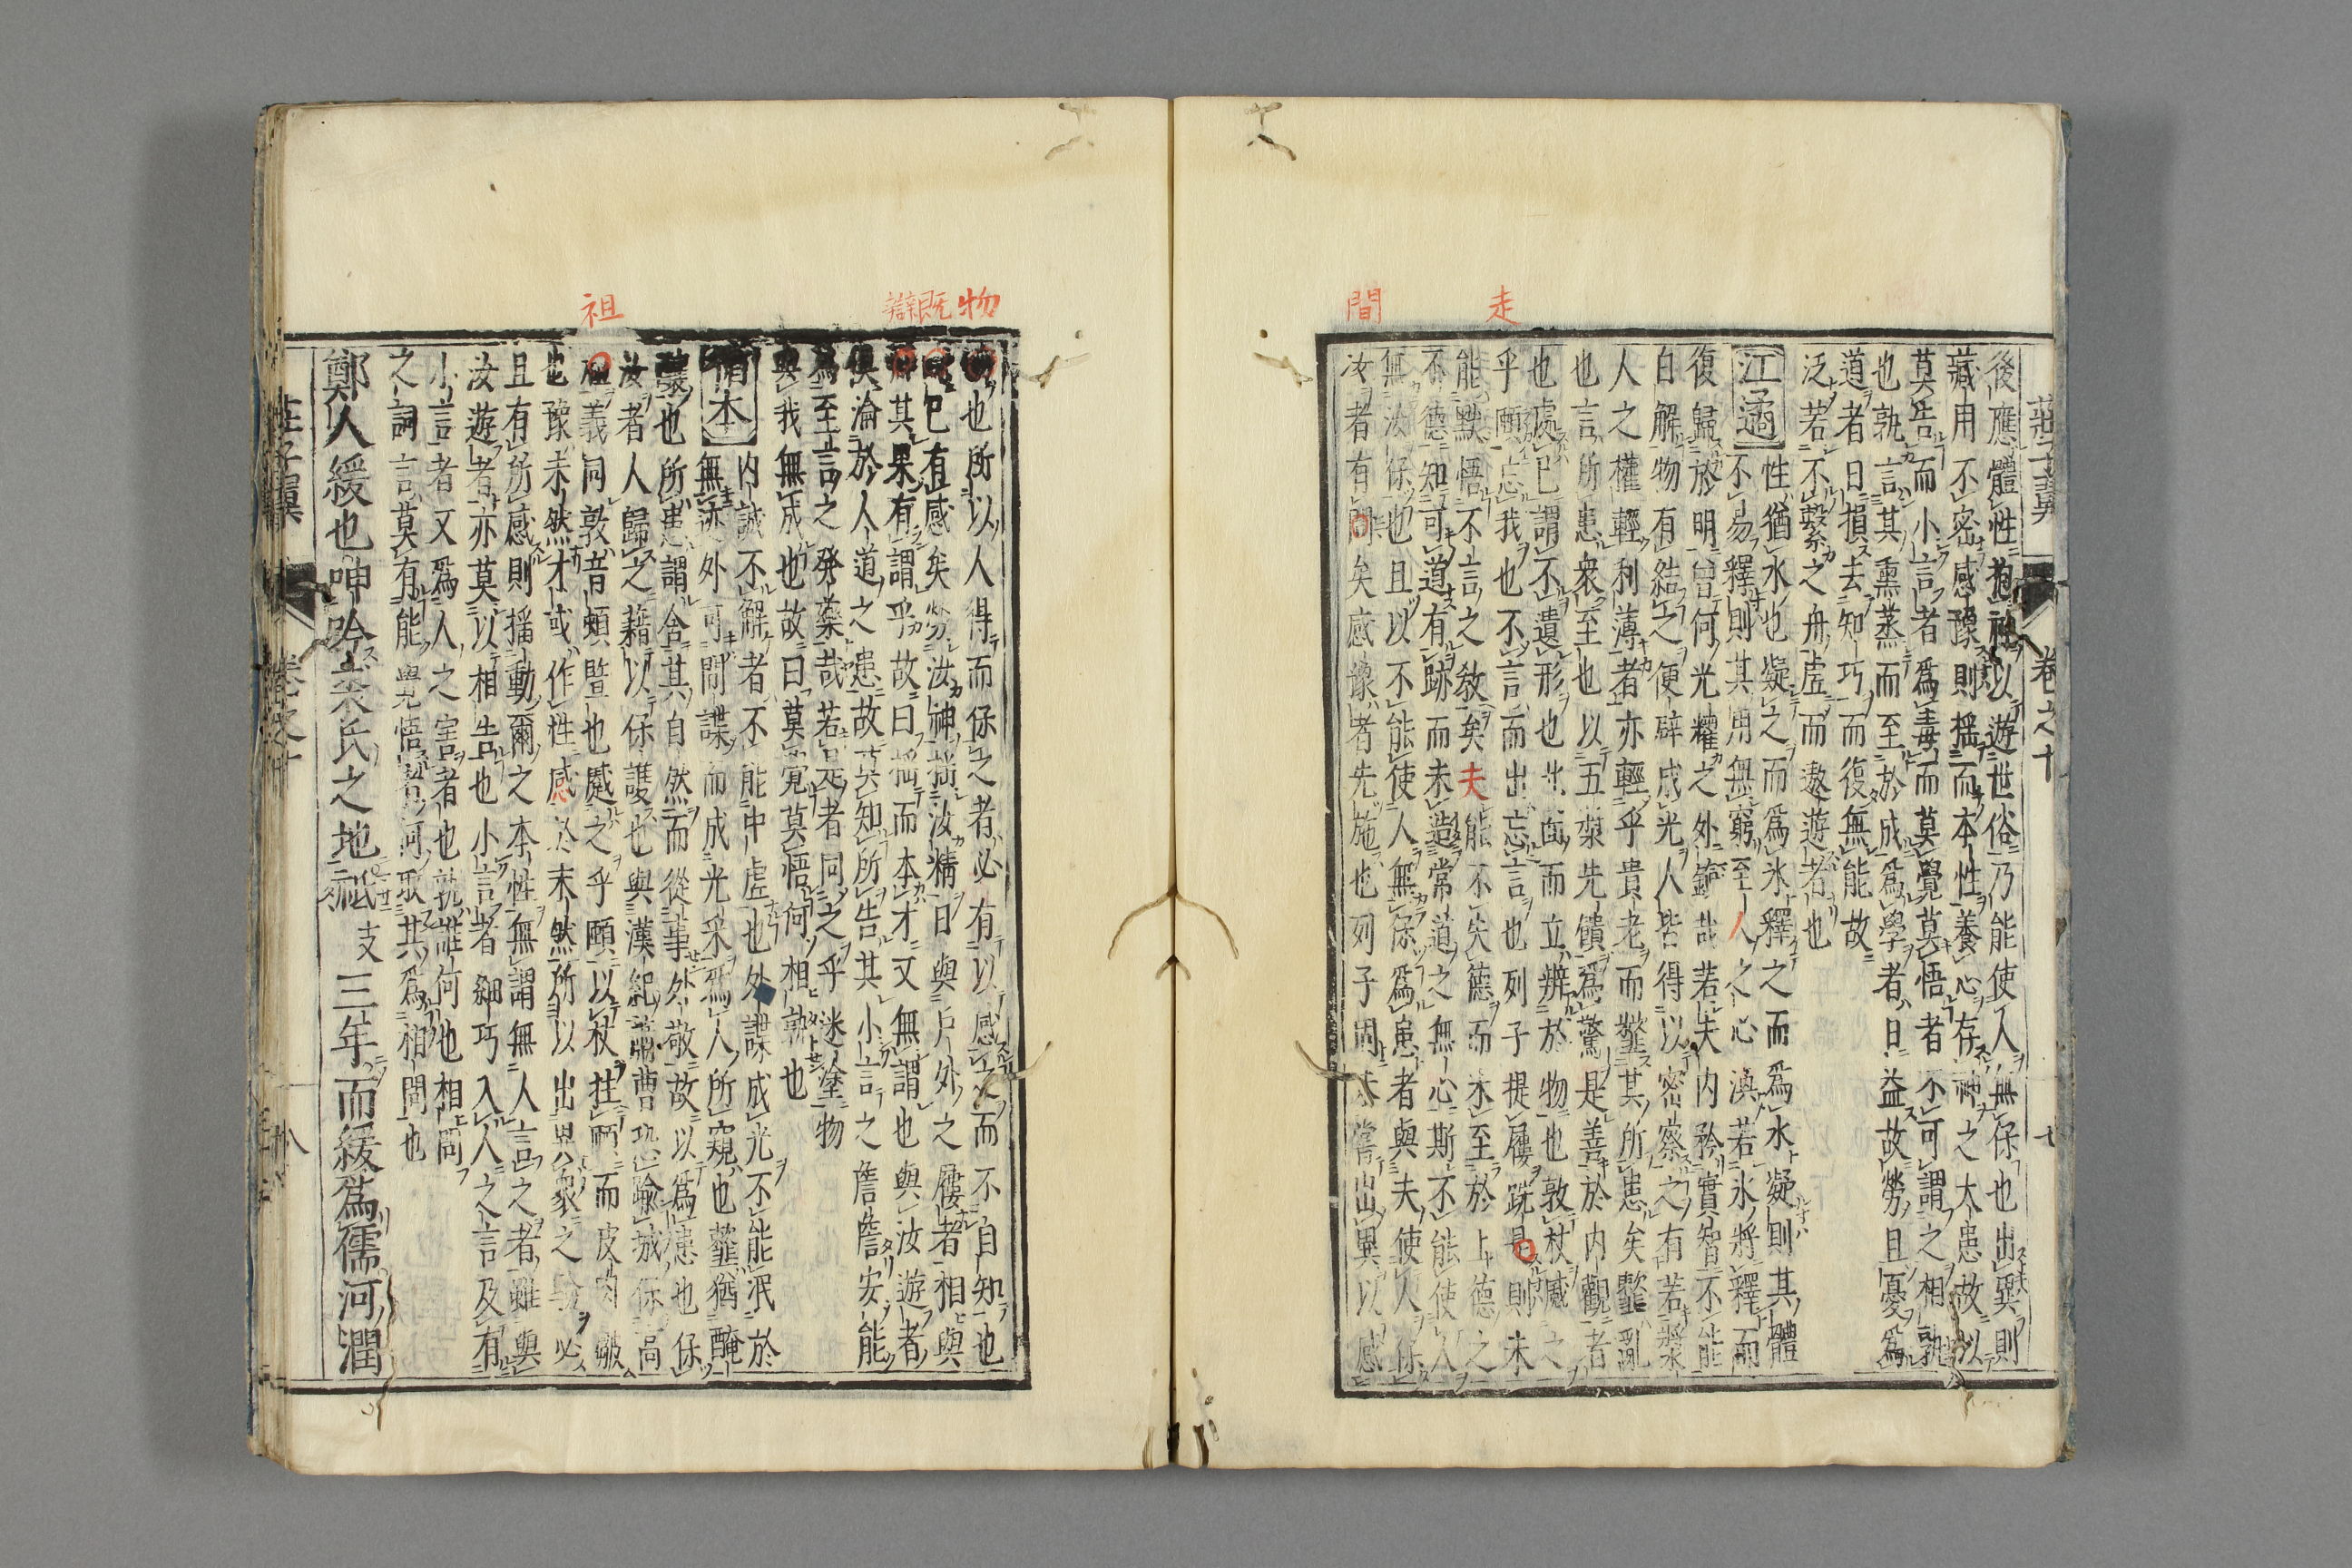 走
間
莊子翼
卷之十
七
後應體性抱神以遊世俗乃能使人無保也出異則
藏用不密感豫則搖而本性養心存神之大患故以
莫告而小言者爲毒而莫覺莫悟者不可謂之相孰
也孰言其熏蒸而至於成爲學者日益故勞且憂爲
道者日損去知巧而復無能故
泛若不繫之舟虛而遨遊者也
江遹
性猶水也凝之而爲氷釋之而爲水凝則其體
不易釋則其用無窮至人之心渙若氷將釋而
復歸於明曾何光耀之外鑠哉若夫内矜實智不能
自解物有結之便辟成光人皆得以密察之有若漿
人之權輕利薄者亦輕乎貴老而虀其所患矣虀亂
也言所患衆至也以五漿先饋爲驚是善於内觀者
也處已謂不遺形也出而立辨於物也敦杖蹙之
乎頤忘我也不言而出忘言也列子提屨跣是則未
能默悟不言之教矣夫能不失德而未至於上德之
不德知可道有跡而未造常道之無心斯不能使人
無汝保也且以不能使人無保爲患者與夫使人保
汝者有間矣感豫者先施也列子固未嘗出異以感
物
既
辯
祖
物也所以人得而保之者必有以感之而不自知也
既已有感矣勞汝神搖汝精日與戶外之屨者相與
辯其果有謂乎故曰搖而本才又無謂也與汝遊者
俱淪於人道之患故其知所告其小言之詹詹安能
爲至言之發藥哉若是者同之乎迷塗物
與我無成也故曰莫覺莫悟何相孰也
循本
内誠不解者不能中虛也外諜成光不能泯於
無迹外可間諜而成光采爲人所窺也虀猶醃
釀也所患謂舍其自然而從事外敬故以爲患也保
汝者人歸之藉以保護也與漢紀蕭曹恐踰城保高
祖義同敦音頓豎也蹙之乎頤以杖拄頤而皮肉皺
也豫未然才或作性感於未然所以出異衆之舉必
且有所感則搖動爾之本性無謂無人言之者雖與
汝遊者亦莫以相告也小言者細巧入人之言及有
小言者又爲人之害者也孰誰何也相問
之詞言莫有能覺悟者何取其爲相問也
鄭人緩也呻吟裘氏之地祗支三年而緩爲儒河潤
莊子翼
卷之十
八